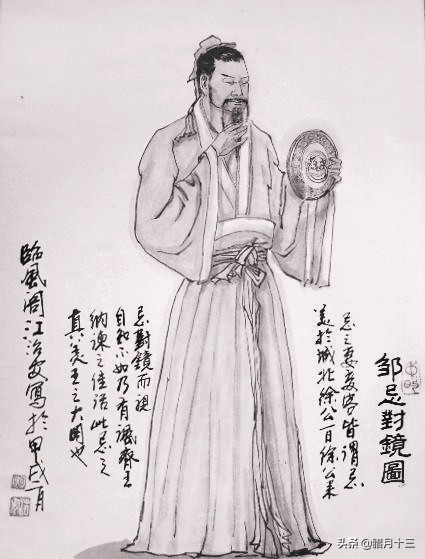 邹忌對鏡圖
忌之妻妾客皆謂忌
美於城北徐公一日徐公来
忌對鏡而視
自知不如乃有諷齊王
納諫之佳话此忌之
真美王之大也
臨風江治安寫於甲戌一月
头条 @腊月十三